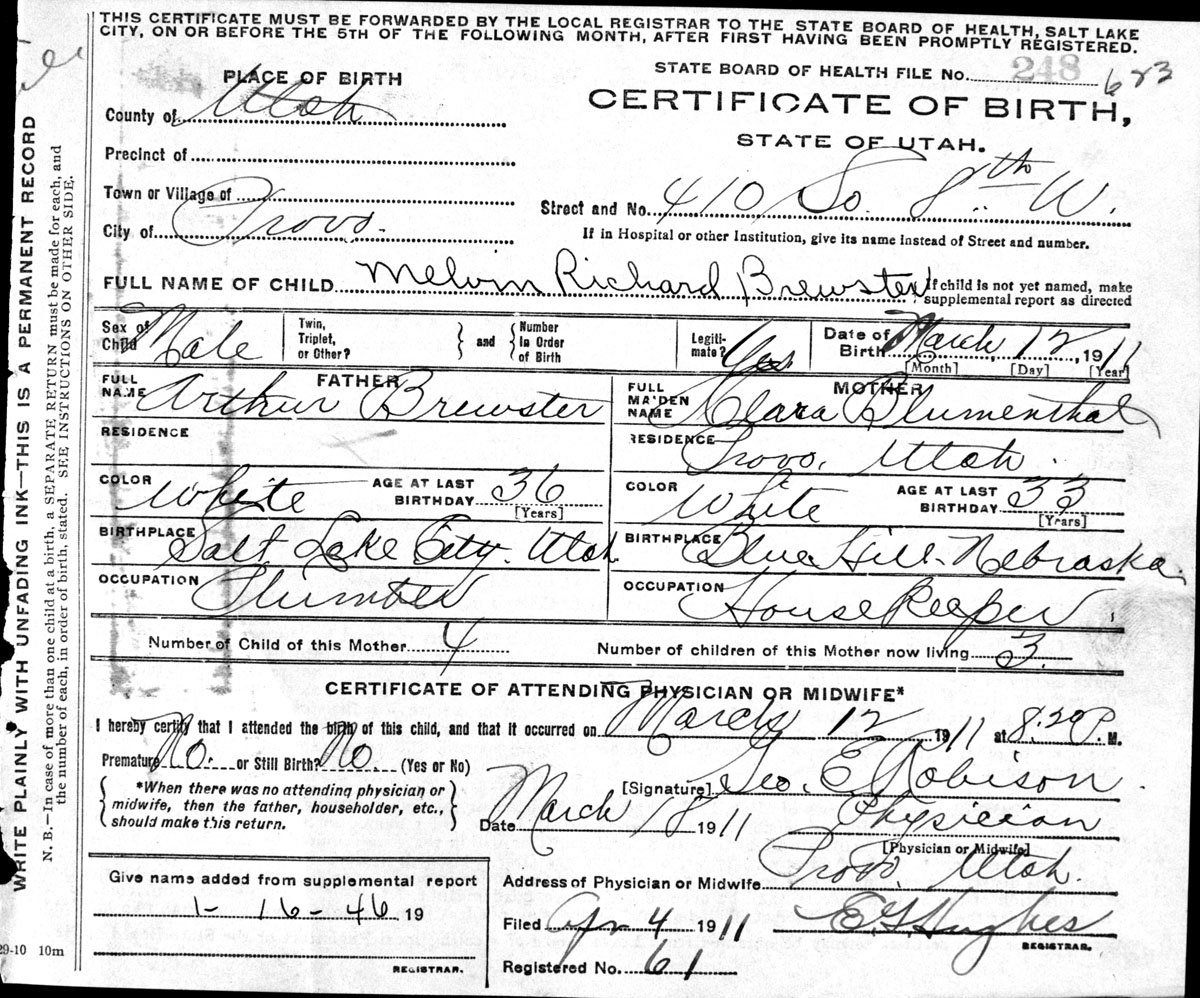 THIS CERTIFICATE MUST BE FORWARDED BY THE LOCAL REGISTRAR TO THE STATE BOARD OF HEALTH, SALT LAKE
CITY, ON OR BEFORE THE 5TH OF THE FOLLOWING MONTH, AFTER FIRST HAVING BEEN PROMPTLY REGISTERED.
PLACE OF BIRTH
STATE BOARD OF HEALTH FILE NO. 248 623
County of Utah
CERTIFICATE OF BIRTH,
STATE OF UTAH.
Precinct of
Town or Village of
Street and No. 410 So. 8th W.
City of Provo.
If in Hospital or other Institution, give its name instead of Street and number.
FULL NAME OF CHILD Melvin Richard Brewster
If child is not yet named, make
supplemental report as directed
Sex of Child Male
Twin, Triplet, or Other?
and
Number In Order of Birth
Legiti-mate? Yes
Date of Birth March 12, 1911
[Month] [Day] [Year]
FATHER
FULL NAME Arthur Brewster
MOTHER
FULL MAIDEN NAME Clara Blumenthal
RESIDENCE
RESIDENCE Provo, Utah.
COLOR White AGE AT LAST BIRTHDAY 36 [Years]
COLOR White AGE AT LAST BIRTHDAY 33 [Years]
BIRTHPLACE Salt Lake City. Utah
BIRTHPLACE Blue Hill. Nebraska.
OCCUPATION Plumber
OCCUPATION Housekeeper
Number of Child of this Mother 4
Number of children of this Mother now living 3.
CERTIFICATE OF ATTENDING PHYSICIAN OR MIDWIFE*
I hereby certify that I attended the birth of this child, and that it occurred on March 12 1911 at 8:20 P. M.
Premature No. or Still Birth? No. (Yes or No)
[Signature] Geo. E Robison
*When there was no attending physician or
midwife, then the father, householder, etc.,
should make this return.
Date March 18 1911
Physician
[Physician or Midwife]
Give name added from supplemental report
1-16-46, 19
REGISTRAR.
Address of Physician or Midwife Provo, Utah.
Filed Apr 4 1911 E. G. Hughes
REGISTRAR.
Registered No. 61
29-10 10m
WRITE PLAINLY WITH UNFADING INK—THIS IS A PERMANENT RECORD
N. B.—In case of more than one child at a birth, a SEPARATE RETURN must be made for each, and
the number of each, in order of birth, stated. SEE INSTRUCTIONS ON OTHER SIDE.